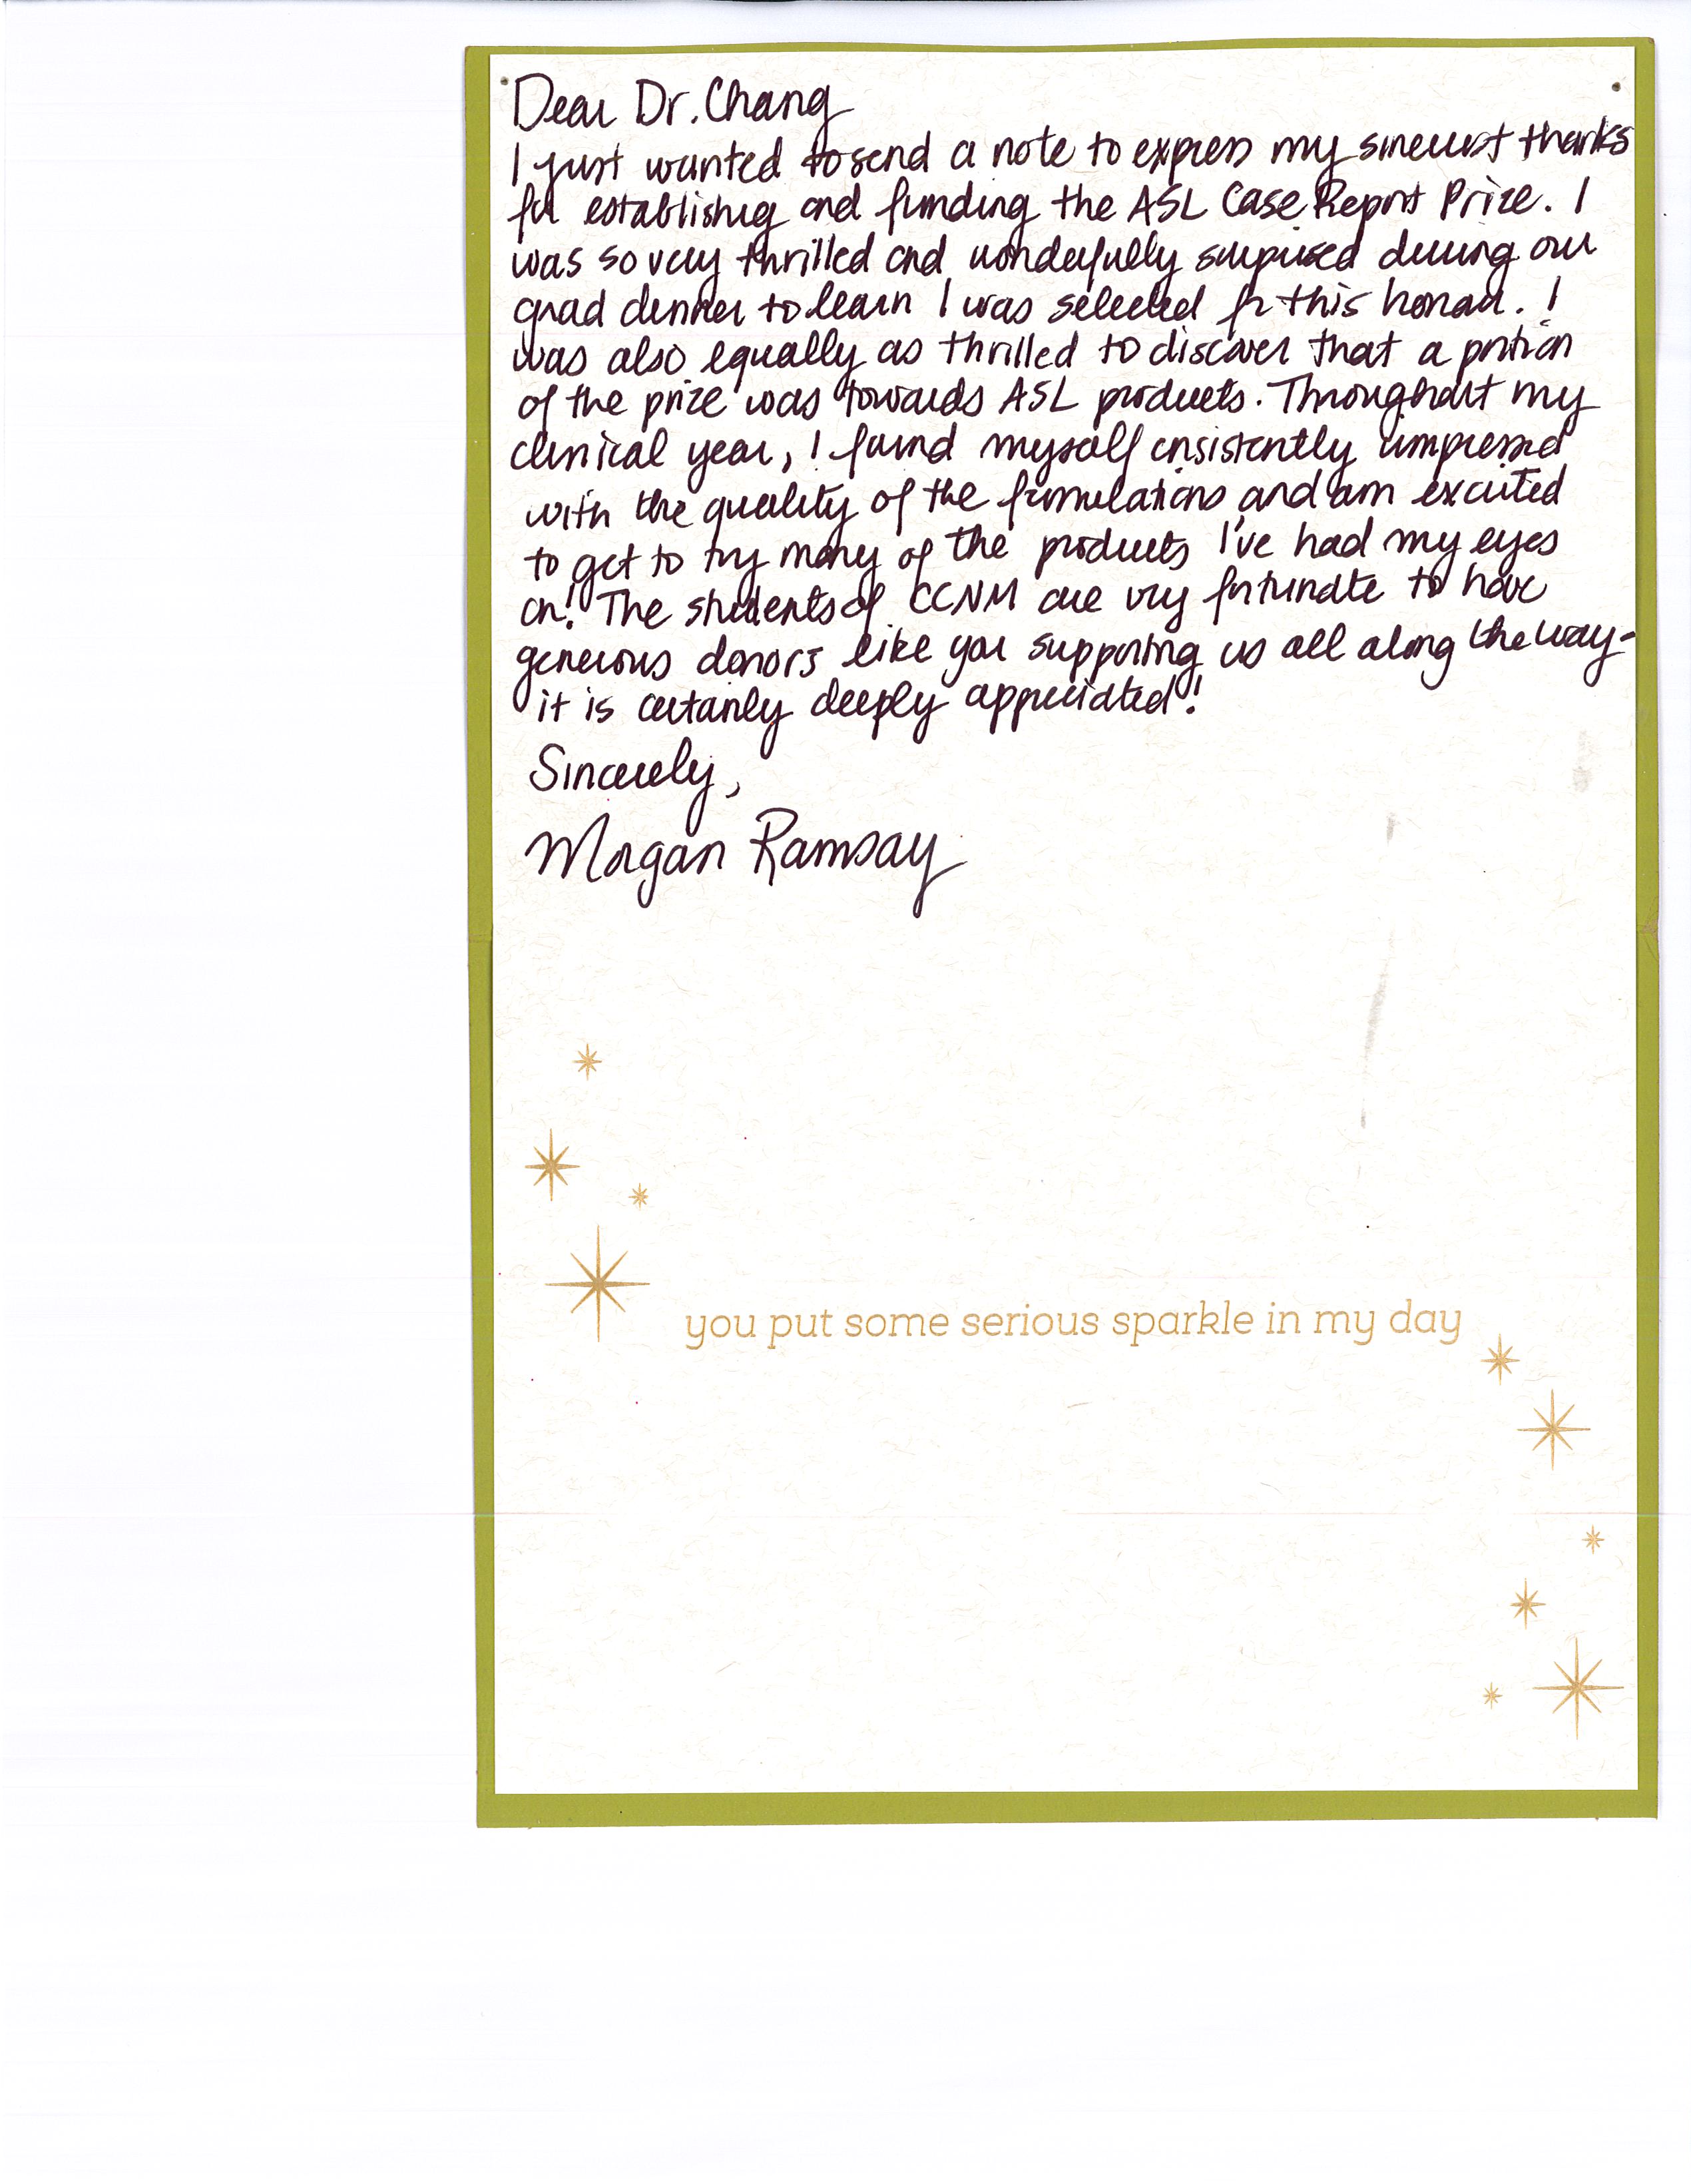 Dear Dr. Chang
I just wanted to send a note to express my sincerest thanks
for establishing and funding the ASL Case Report Prize. I
was so very thrilled and wonderfully surprised during our
grad dinner to learn I was selected for this honour. I
was also equally as thrilled to discover that a portion
of the prize was towards ASL products. Throughout my
clinical year, I found myself consistently impressed
with the quality of the formulations and am excited
to get to try many of the products I've had my eyes
on! The students of CCNM are very fortunate to have
generous donors like you supporting us all along the way-
it is certainly deeply appreciated!
Sincerely,
Morgan Ramsay
you put some serious sparkle in my day